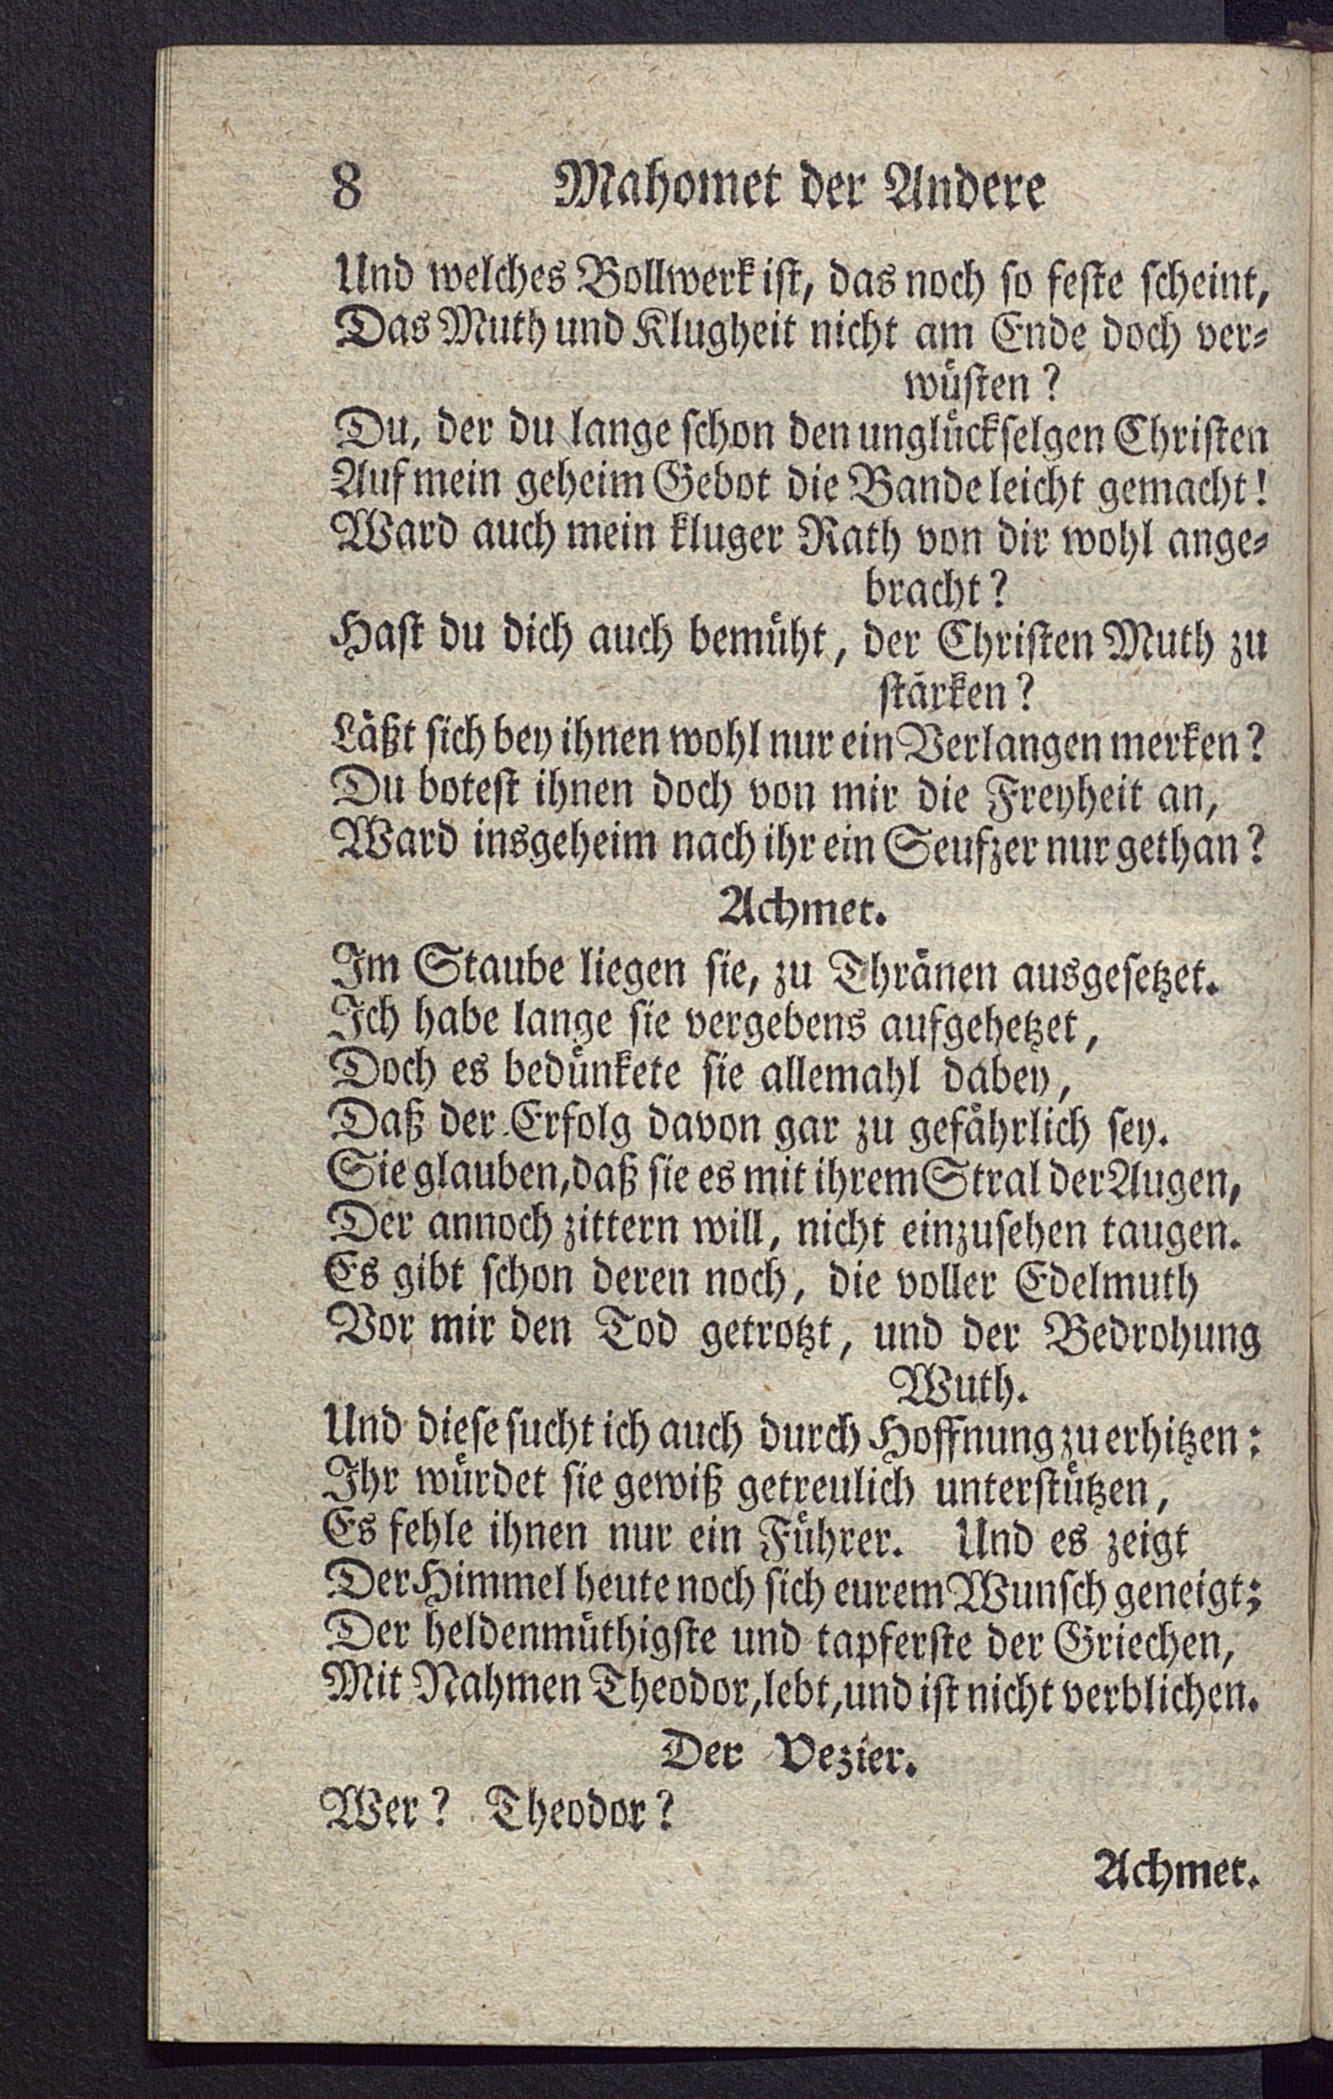 8 Mahomet der Andere
Und welches Bollwerk ist, das noch so feste scheint,
Das Muth und Klugheit nicht am Ende doch ver-
wüsten?
Du, der du lange schon den unglückselgen Christen
Auf mein geheim Gebot die Bande leicht gemacht!
Ward auch mein kluger Rath von dir wohl ange-
bracht?
Hast du dich auch bemüht, der Christen Muth zu
stärken?
Läßt sich bey ihnen wohl nur ein Verlangen merken?
Du botest ihnen doch von mir die Freyheit an,
Ward insgeheim nach ihr ein Seufzer nur gethan?
Achmet.
Im Staube liegen sie, zu Thränen ausgesetzet.
Ich habe lange sie vergebens aufgehetzet,
Doch es bedünkete sie allemahl dabey,
Daß der Erfolg davon gar zu gefährlich sey.
Sie glauben, daß sie es mit ihrem Stral der Augen,
Der annoch zittern will, nicht einzusehen taugen.
Es gibt schon deren noch, die voller Edelmuth
Vor mir den Tod getrotzt, und der Bedrohung
Wuth.
Und diese sucht ich auch durch Hoffnung zu erhitzen:
Ihr würdet sie gewiß getreulich unterstützen,
Es fehle ihnen nur ein Führer. Und es zeigt
Der Himmel heute noch sich eurem Wunsch geneigt;
Der heldenmüthigste und tapferste der Griechen,
Mit Nahmen Theodor, lebt, und ist nicht verblichen.
Der Vezier.
Wer? Theodor?
Achmet.